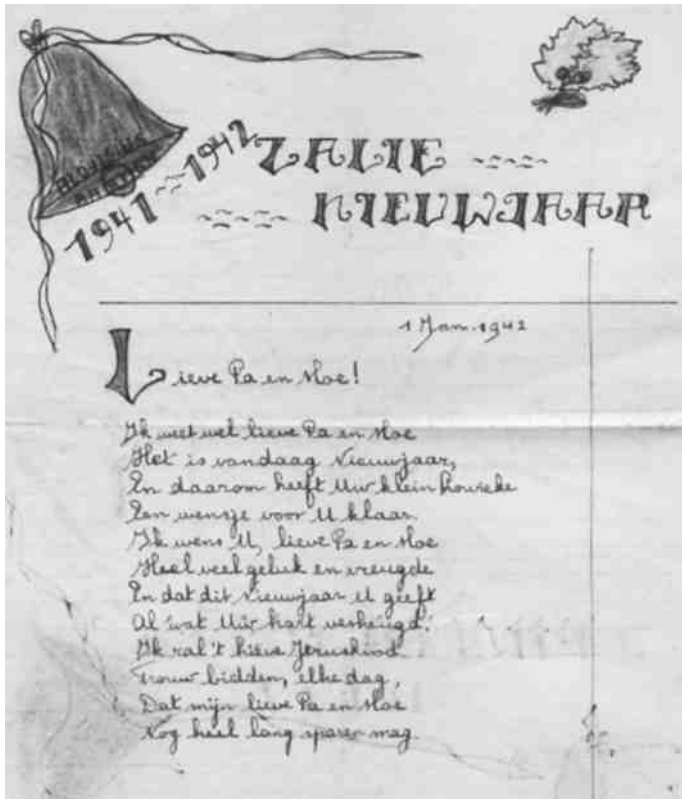 1941 ~ 1942
ZALIE
NIEUWJAAR
1 Jan. 1942
Lieve Pa en Moe!
Ik weet wel lieve Pa en Moe
Het is vandaag Nieuwjaar,
En daarom heeft Uw klein
Een wensje voor U klaar.
Ik wens U, lieve Pa en Moe
Heel veel geluk en vreugde
En dat dit Nieuwjaar U geeft
Al wat Uw hart verheugd!
Ik zal 't lieve Jezuskind
Trouw bidden, elke dag,
Dat mijn lieve Pa en Moe
Nog heel lang sparen mag.